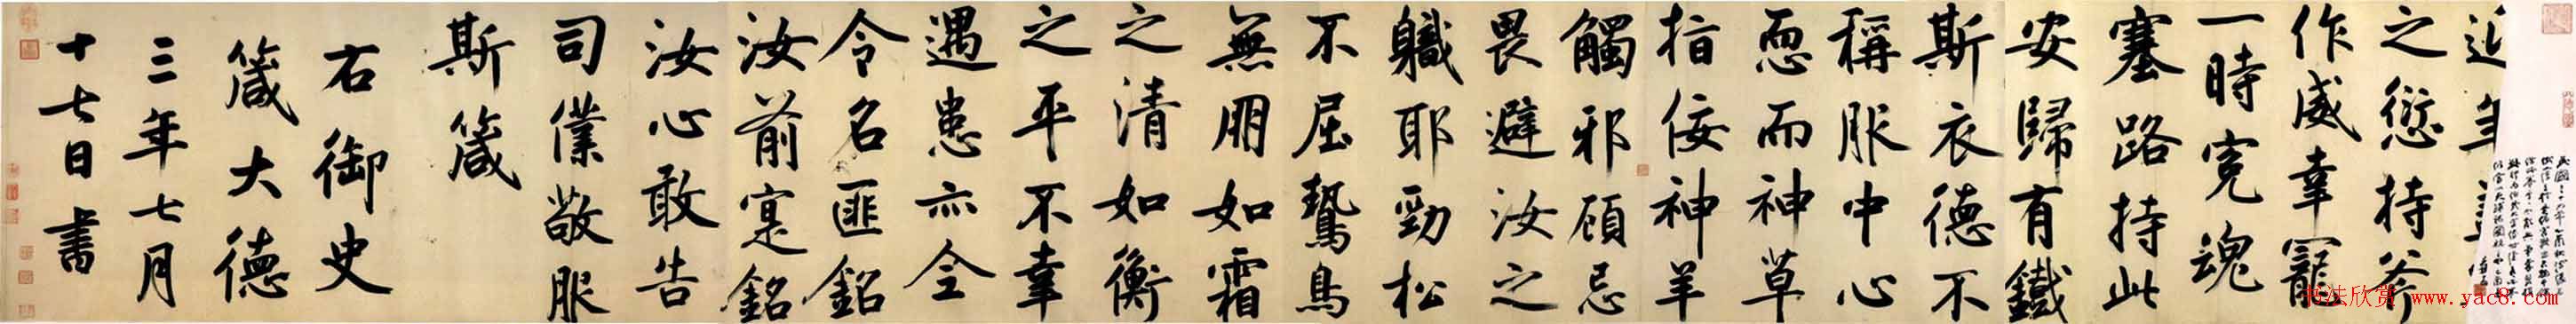 近年
之愆持斧
作威幸寵
一時冤魂
塞路持此
安歸有鐵
斯衣德不
稱服中心
恧而神草
指佞神羊
觸邪顧忌
畏避汝之
軄耶勁松
不屈鷙鳥
無朋如霜
之清如衡
之平不幸
遇患亦全
令名匪銘
汝前寔銘
汝心敢告
司僕敬服
斯箴
右御史
箴大德
三年七月
十七日書
书法欣赏 www.yac8.com